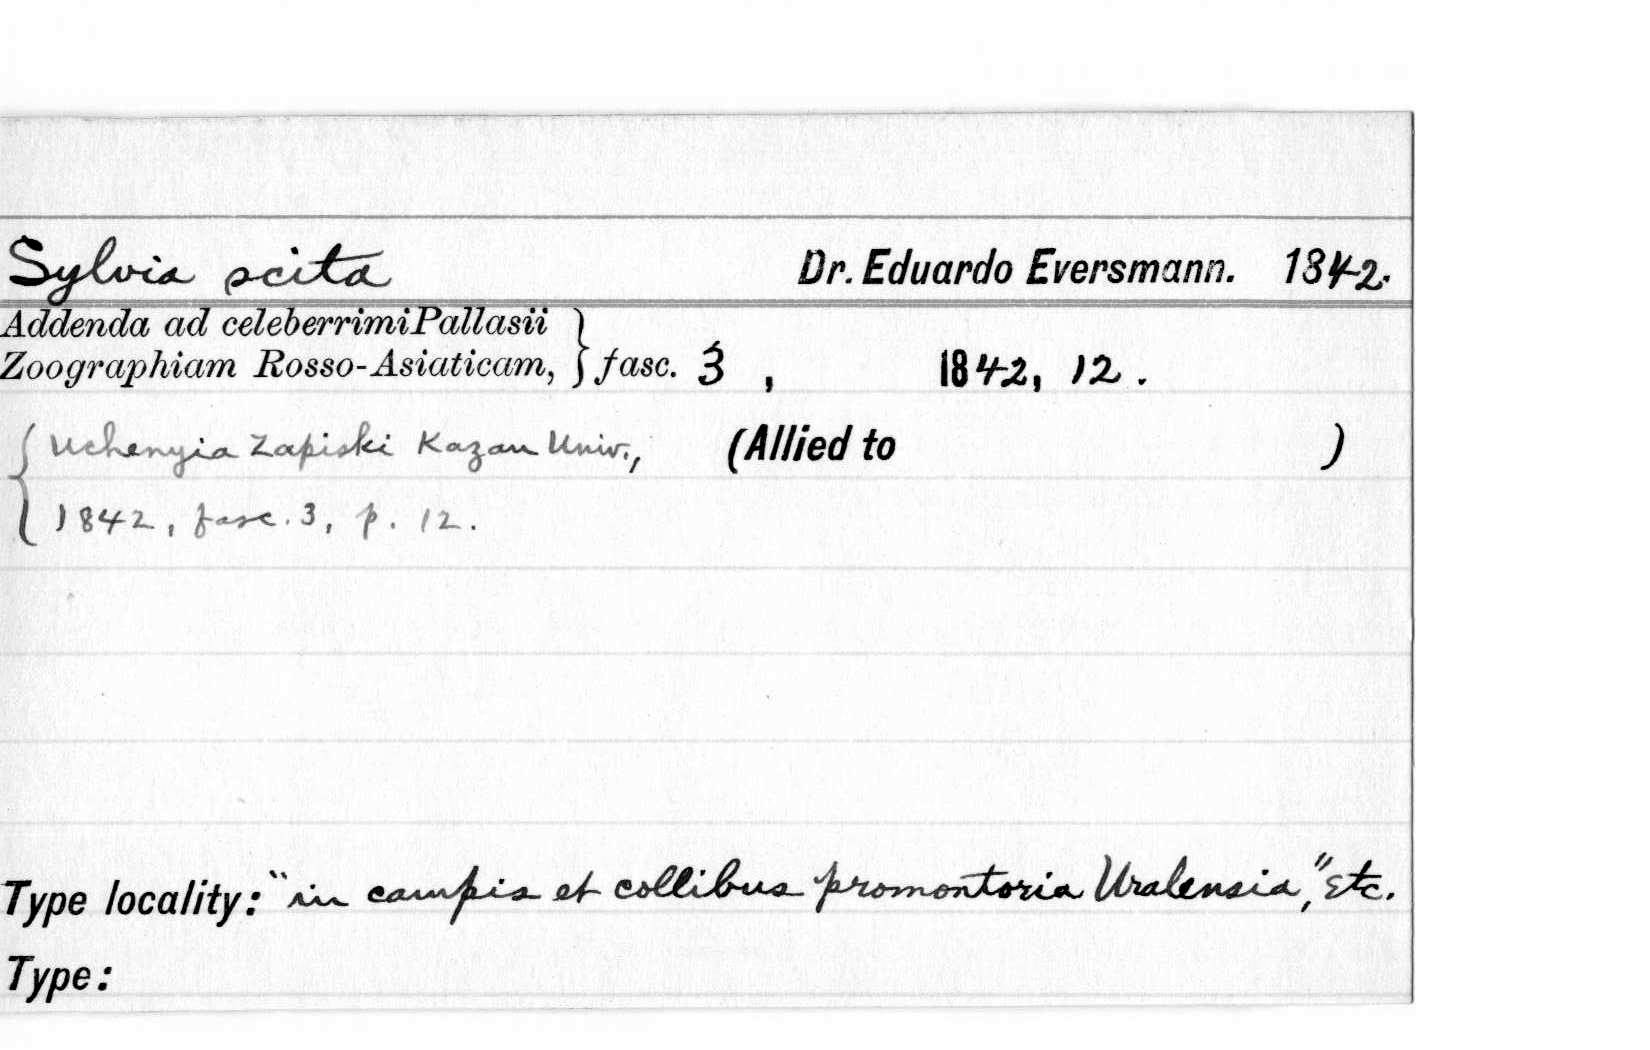 Sylvia scita Dr. Eduardo Eversmann. 1842.
Addenda ad celeberrimi Pallasii
Zoographiam Rosso-Asiaticam, } fasc. 3 , 1842, 12.
{ Uchenyia Zapiski Kazan Univ., (Allied to )
1842, fasc. 3, p. 12.
Type locality: "in campis et collibus promontoria Uralensia," Etc.
Type: